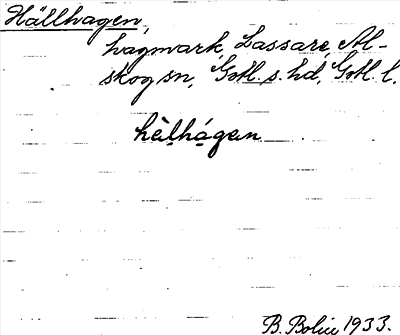 Hällhagen,
hagmark, Lassare, Al-
skog sn, Gotl. s. hd, Gotl. l.
hèlhágen
B. Bolin 1933.